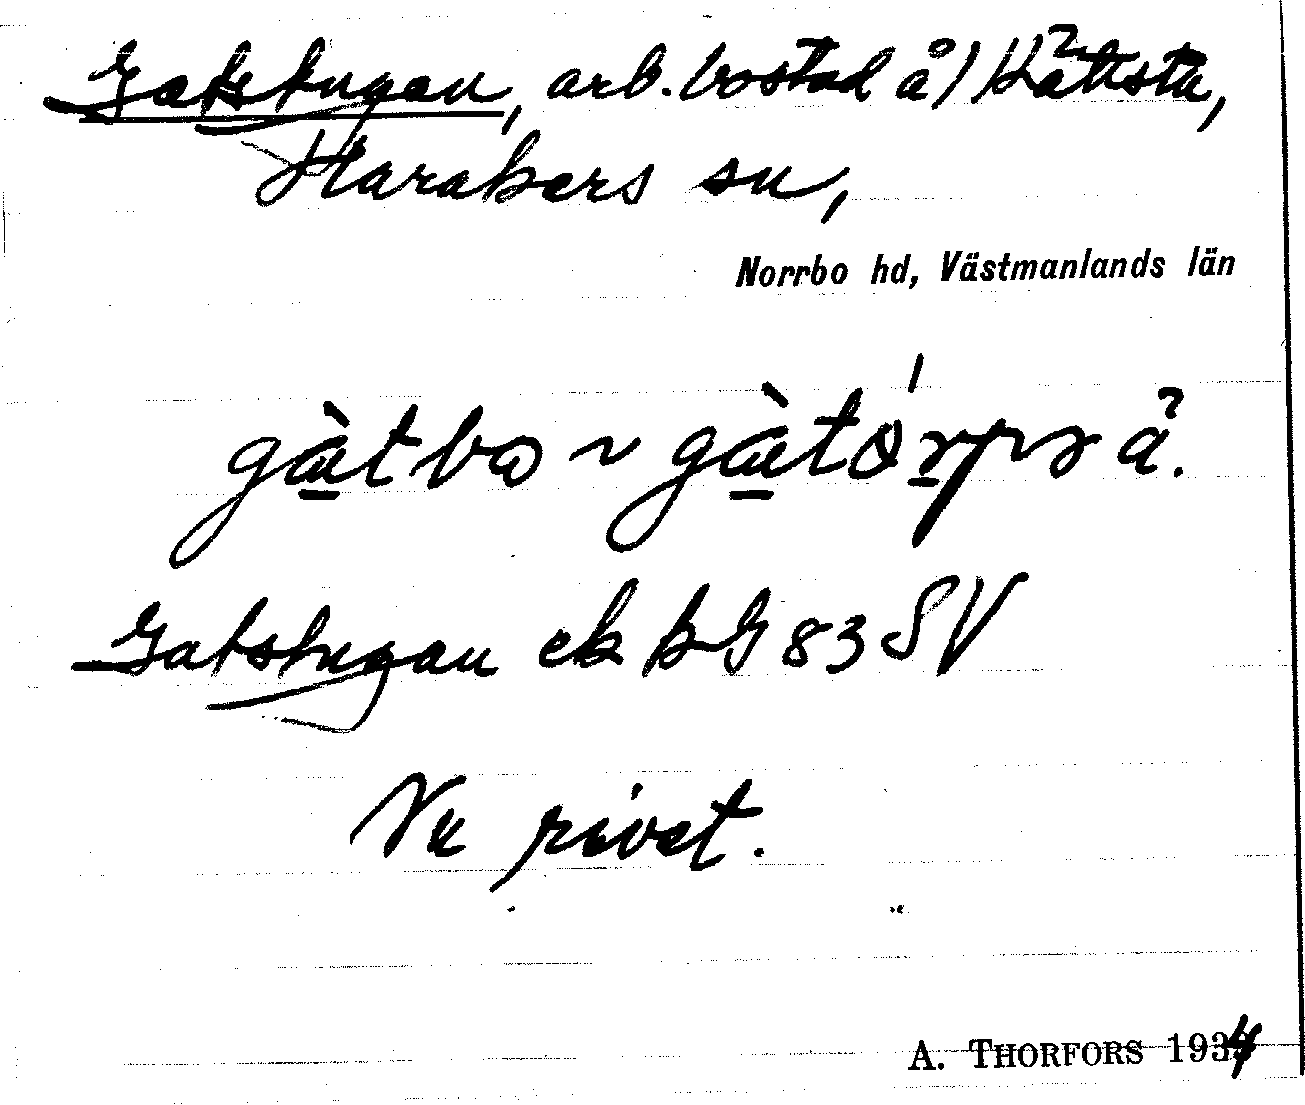 Gatstugan, arb.bostad å) Hättsta,
Harakers sn,
Norrbo hd, Västmanlands län
gàtbo ~ gàtórpr
Gatstugan ek bl G 83 SV
Nu rivet.
A. THORFORS 1934